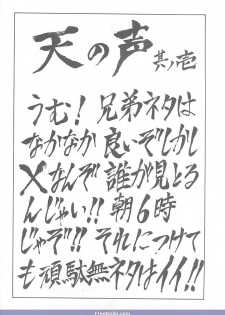 天の声 其ノ壱
うむ！兄弟ネタは
なかなか良いぞしかし
Xなんぞ誰が見とる
んじゃい!!朝6時
じゃぞ!!それにつけて
も頑駄無ネタはイイ!!